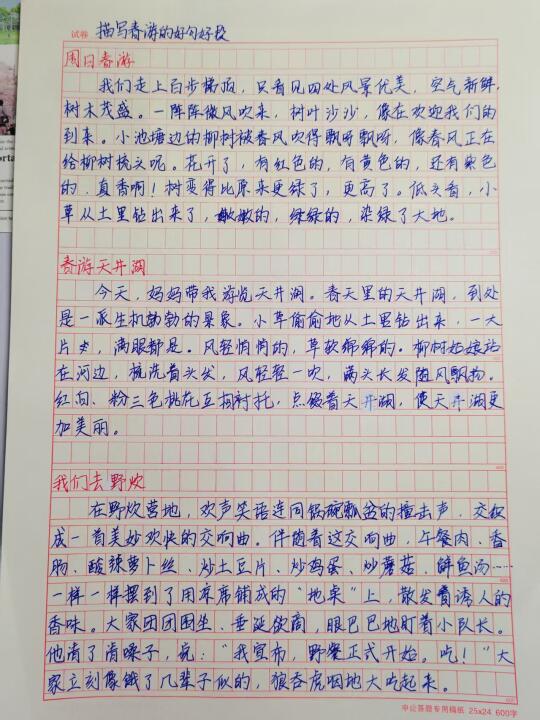 试卷 描写春游的好句好段
周日春游
我们走上百步梯顶，只看见四处风景优美，空气新鲜，
树木茂盛。一阵阵微风吹来，树叶沙沙，像在欢迎我们的
到来。小池塘边的柳树被春风吹得飘呀飘呀，像春风正在
给柳树梳头呢。花开了，有红色的，有黄色的，还有紫色
的，真香啊！树变得比原来更绿了，更高了。低头看，小
草从土里钻出来了，嫩嫩的，绿绿的，染绿了大地。
春游天井湖
今天，妈妈带我游览天井湖。春天里的天井湖，到处
是一派生机勃勃的景象。小草偷偷地从土里钻出来，一大
片，满眼都是。风轻悄悄的，草软绵绵的。柳树姑娘站
在河边，梳洗着头发，风轻轻一吹，满头长发随风飘扬。
红、白、粉三色桃花互相衬托，点缀着天井湖，使天井湖更
加美丽。
我们去野炊
在野炊营地，欢声笑语连同锅碗瓢盆的撞击声，交织
成一首美妙欢快的交响曲。伴随着这交响曲，午餐肉、香
肠、酸辣萝卜丝、炒土豆片、炒鸡蛋、炒蘑菇、鲜鱼汤……
一样一样摆到了用床席铺成的“地桌”上，散发着诱人的
香味。大家团团围坐、垂涎欲滴，眼巴巴地盯着小队长。
他清了清嗓子，说：“我宣布，野餐正式开始。吃！”大
家立刻像饿了几辈子似的，狼吞虎咽地大吃起来。
申论答题专用稿纸 25x24 600字